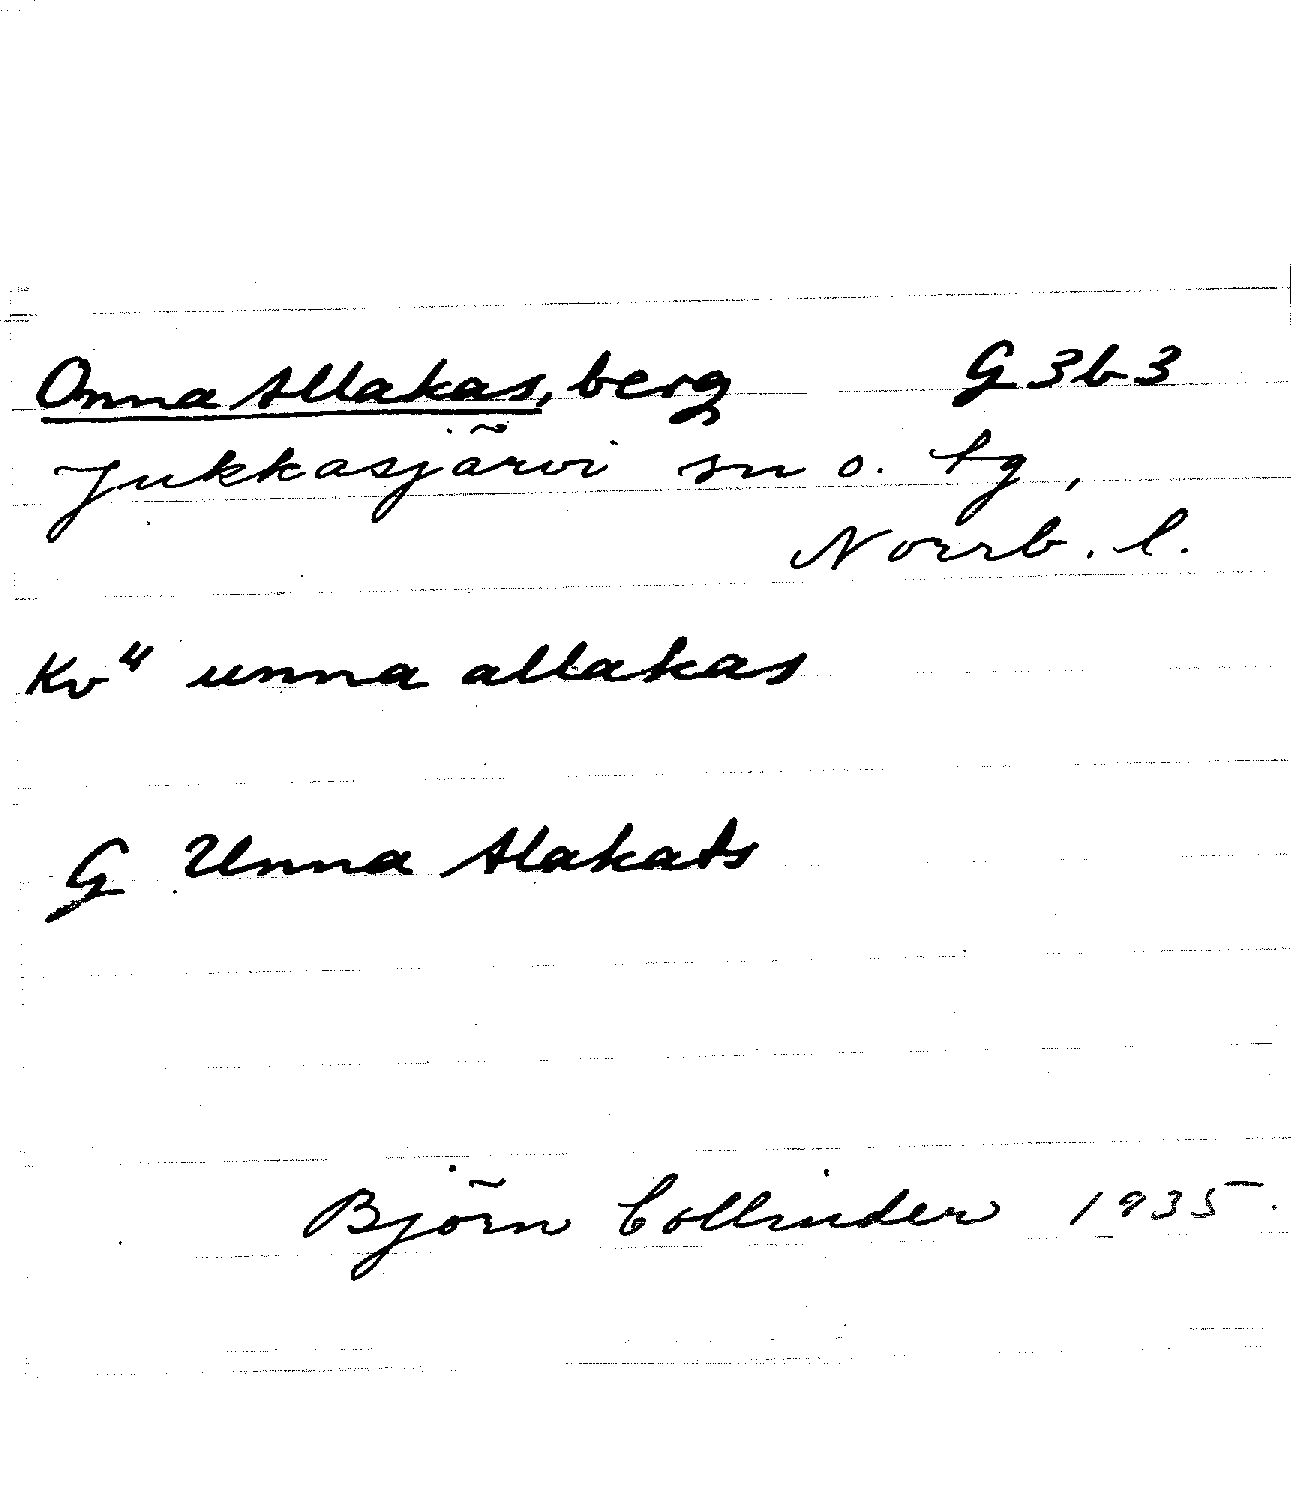 Onna Allakas, berg G 3 b 3
Jukkasjärvi sn o. tg,
Norrb. l.
Kv" unna allakas
G Unna Alakats
Björn Collinder 1935.